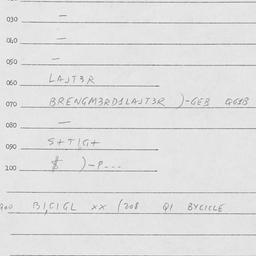 030 —
040 —
050 —
060 LAJT3R
070 BRENGM3RD1LAJT3R )-GEB
080 —
090 S+T|G+
100 $ )-P---
BICIGL XX BYCICLE